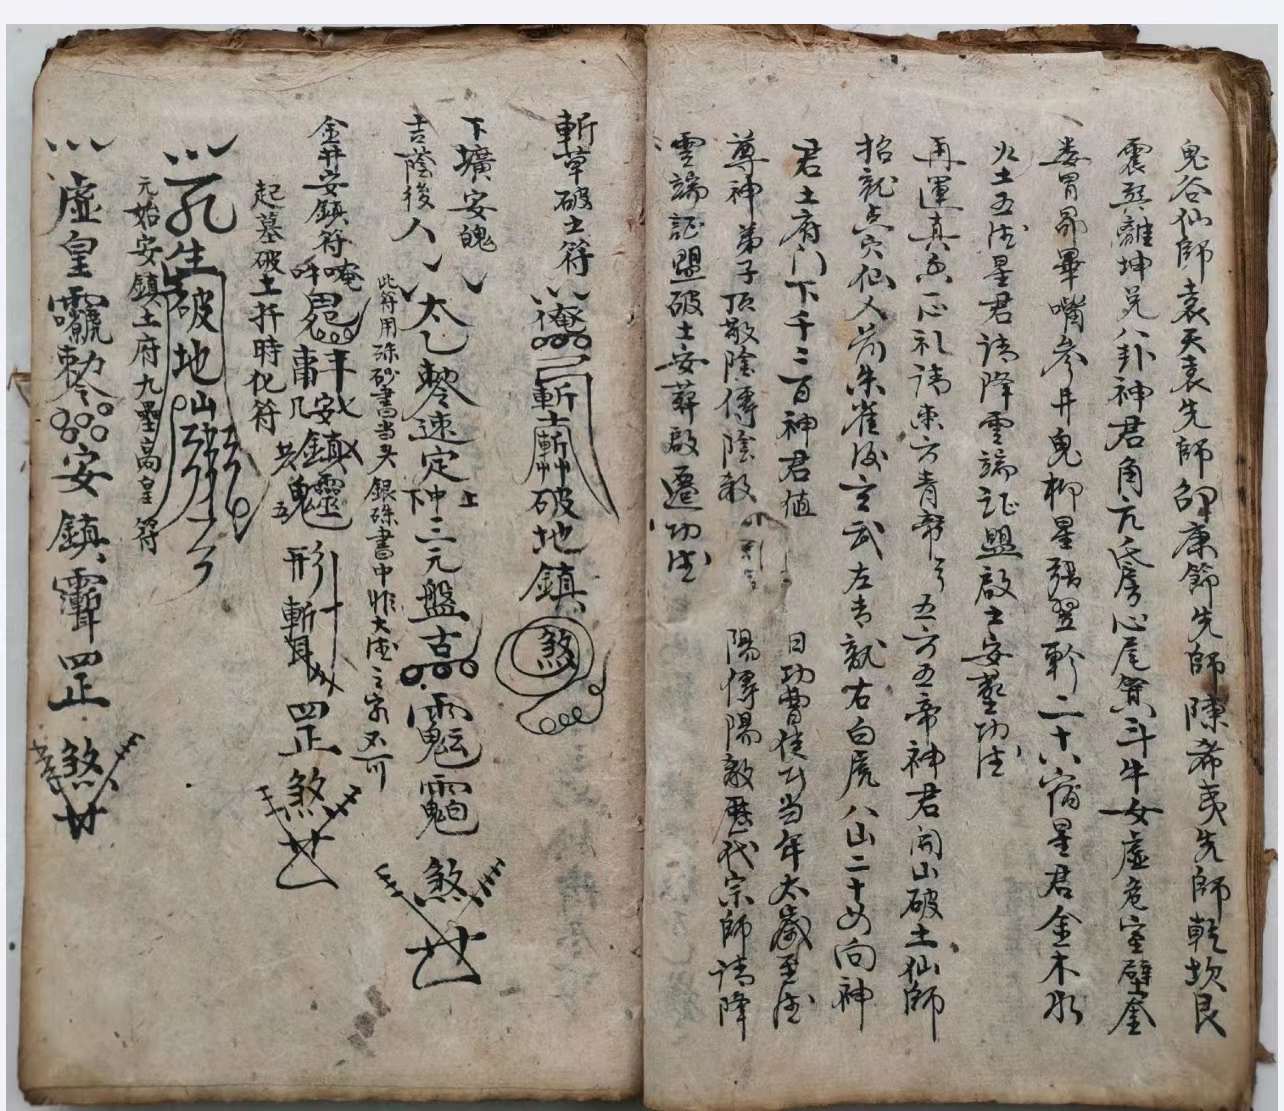 鬼谷仙師袁天袁先師邵康節先師陳希夷先師乾坎艮
震巽離坤兑八卦神君角亢氐房心尾箕斗牛女虚危室壁奎
娄胃昴畢嘴參井鬼柳星張翌軫二十八宿星君金木水
火土五德星君請降雲端証盟啟土安墓功德
再運真香一心正礼請東方青帝　五方五帝神君開山破土仙師
招龍点穴仙人前朱雀後玄武左青龍右白虎八山二十四向神
君土府门下千二百神君值　日功曹使者当年太歲至德
尊神弟子頂敬陰傳陰教　陽傳陽教歷代宗師請降
雲端証盟破土安葬啟遷功德
斬草破土符
斬　破地鎮煞
下壙安魄
吉蔭後人
太乙　速定　三元盤古　煞
上中下
此符用硃砂書当天銀硃書中惟大德之家不可
金井安鎮符
唵吽
安鎮靈　形斬　罡煞
起墓破土扦時化符
生破地
元始安鎮土府九壘高皇符
虚皇　敕　安鎮　罡煞